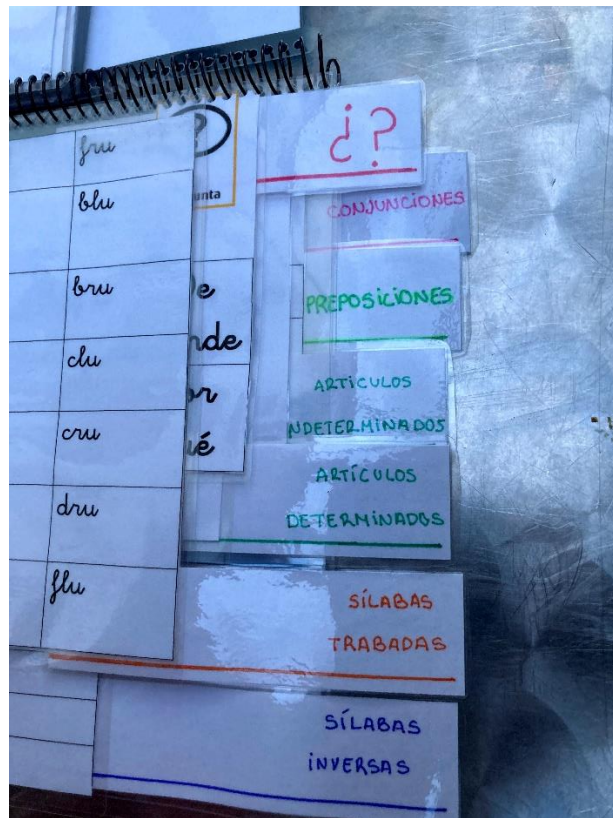 fru
blu
bru
clu
cru
dru
flu
¿?
CONJUNCIONES
PREPOSICIONES
ARTÍCULOS
NDETERMINADOS
ARTÍCULOS
DETERMINADOS
SÍLABAS
TRABADAS
SÍLABAS
INVERSAS
?
unta
e
nde
or
ué